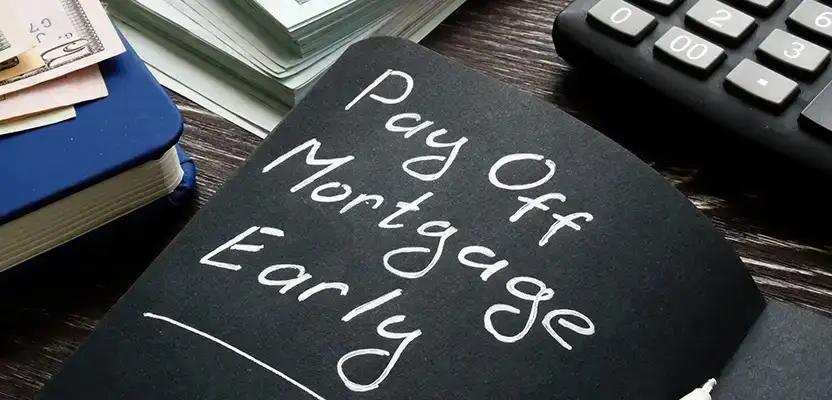 Pay Off
Mortgage
Early
0
2
6
00
3
.